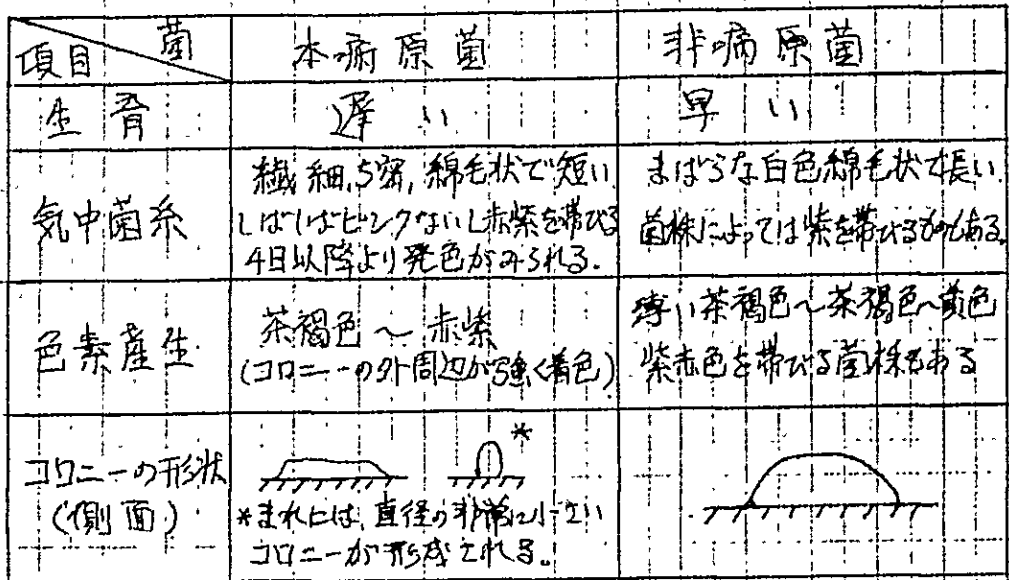 項目 菌 本病原菌 非病原菌
生育 遅い 早い
気中菌糸
繊細,ち密,綿毛状で短い
しばしばピンクないし赤紫を帯びる
4日以降より発色がみられる.
まばらな白色綿毛状で長い.
菌株によっては紫を帯びるものもある.
色素産生
茶褐色～赤紫
(コロニーの外周辺が強く着色)
薄い茶褐色～茶褐色～黄色
紫赤色を帯びる菌株もある
コロニーの形状
(側面)
*
*まれには,直径の非常に小さい
コロニーが形成される。